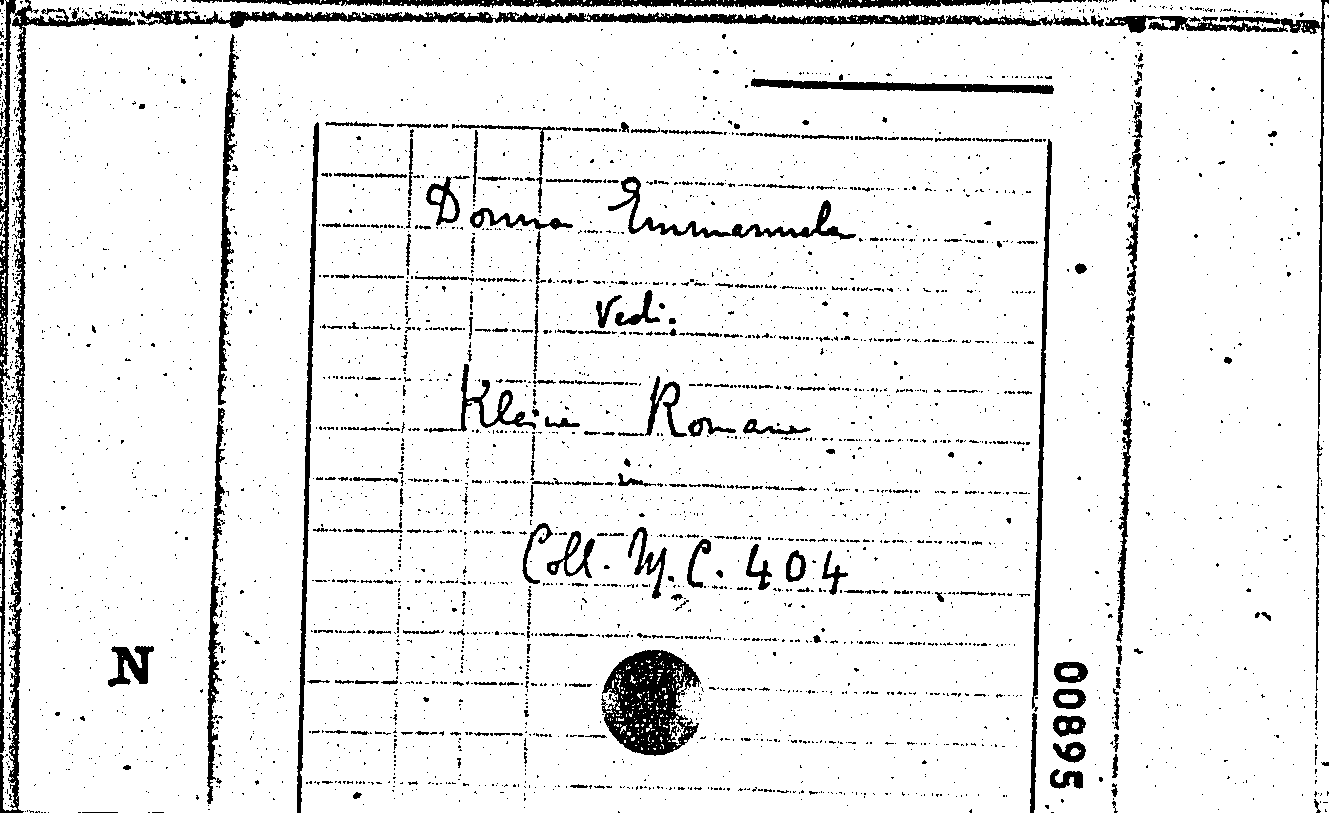 Donna Emmanuela
Vedi:
Kleine Romane
in
Coll. M. C. 404
N
00895